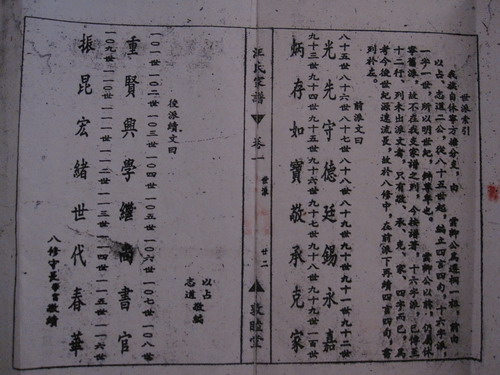 世派索引
我族自休寧方塘分支，由 雲卿公為遷桐一祖，前由
以占、志道二公，從八十五世起，編立四言四句，十六字派，
一字一世，所以明世紀，辨尊卑也。雲卿公以降，仍屬休
寧舊派，故不在我支家譜之列，今 十六字派，已傳至
十二行，列未出派文者，只有敬、承、克、家，四字而已，為
考今後世紀源遠流長，故於八修中，在前派下再續四言四句，書
列於左。
前派文曰
八十五世八十六世八十七世八十八世八十九世九十世九十一世九十二世
光先守德廷錫永嘉
九十三世九十四世九十五世九十六世九十七世九十八世九十九世一百世
炳存如寶敬承克家
汪氏家譜
卷一
世派
廿二
敦睦堂
後派續文曰
以占
志道 敬編
一〇一世一〇二世一〇三世一〇四世一〇五世一〇六世一〇七世一〇八世
重賢興學繼尚書官
一〇九世一一〇世一一一世一一二世一一三世一一四世一一五世一一六世
振昆宏緒世代春華
八修 敬續